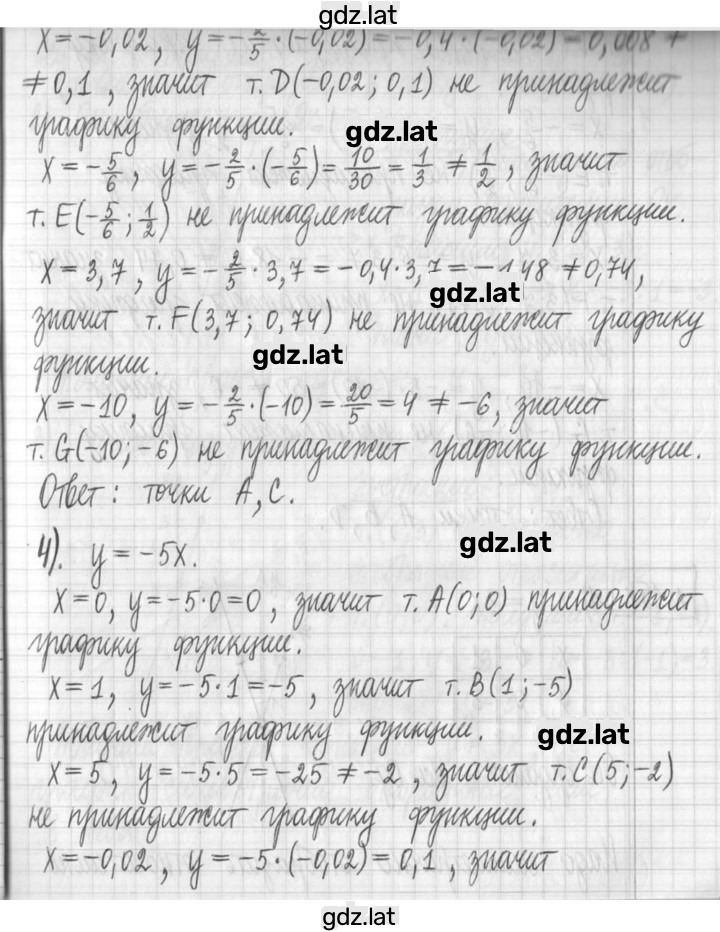 gdz.lat
x=-0,02, y=-2/5·(-0,02)=-0,4·(-0,02)=0,008≠
≠0,1, значит т.D(-0,02; 0,1) не принадлежит
графику функции.
gdz.lat
x=-5/6, y=-2/5·(-5/6)=10/30=1/3≠1/2, значит
т.E(-5/6; 1/2) не принадлежит графику функции.
x=3,7, y=-2/5·3,7=-0,4·3,7=-1,48≠0,74,
gdz.lat
значит т.F(3,7; 0,74) не принадлежит графику
функции.
gdz.lat
x=-10, y=-2/5·(-10)=20/5=4≠-6, значит
т.G(-10;-6) не принадлежит графику функции.
Ответ: точки A,C.
4). y=-5x.
gdz.lat
x=0, y=-5·0=0, значит т.A(0;0) принадлежит
графику функции.
x=1, y=-5·1=-5, значит т.B(1;-5)
принадлежит графику функции.
gdz.lat
x=5, y=-5·5=-25≠-2, значит т.C(5;-2)
не принадлежит графику функции.
x=-0,02, y=-5·(-0,02)=0,1, значит
gdz.lat